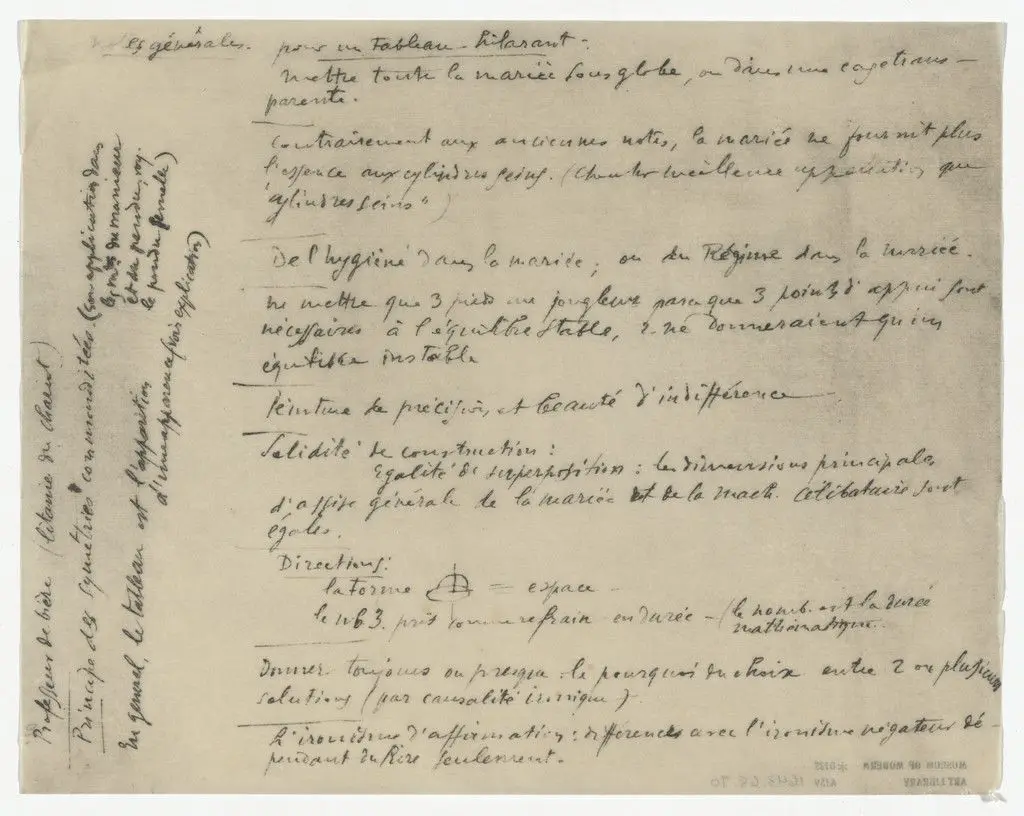 notes générales. pour un Tableau - hilarant -
mettre toute la mariée sous globe, ou dans une cage trans-
parente.
Contrairement aux anciennes notes, la mariée ne fournit plus
l'essence aux cylindres seins. (Chercher meilleure appellation que
"cylindres seins")
De l'hygiène dans la mariée; ou du Régime dans la mariée.
ne mettre que 3 pieds au jongleur parce que 3 points d'appui sont
nécessaires à l'équilibre stable, 2 ne donneraient qu'un
équilibre instable
Peinture de précision, et beauté d'indifférence
Solidité de construction:
Egalité de superposition: les dimensions principales
d'assise générale de la mariée et de la mach. célibataire sont
egales.
Directions:
la forme = espace
le nb 3. pris comme refrain en durée - (le nomb. est la durée
mathématique.
Donner toujours ou presque le pourquoi du choix entre 2 ou plusieurs
solutions (par causalité ironique).
L'ironisme d'affirmation: différences avec l'ironisme négateur dé-
pendant du Rire seulement.
Professeur de bière (litanie du chariot)
Principe des symétries commanditées. (son application dans
les du manieur
et du pendu, voy.
le pendu femelle)
En general, le tableau est l'apparition
d'une apparence (sans explication)
MUSEUM OF MODERN
ART LIBRARY